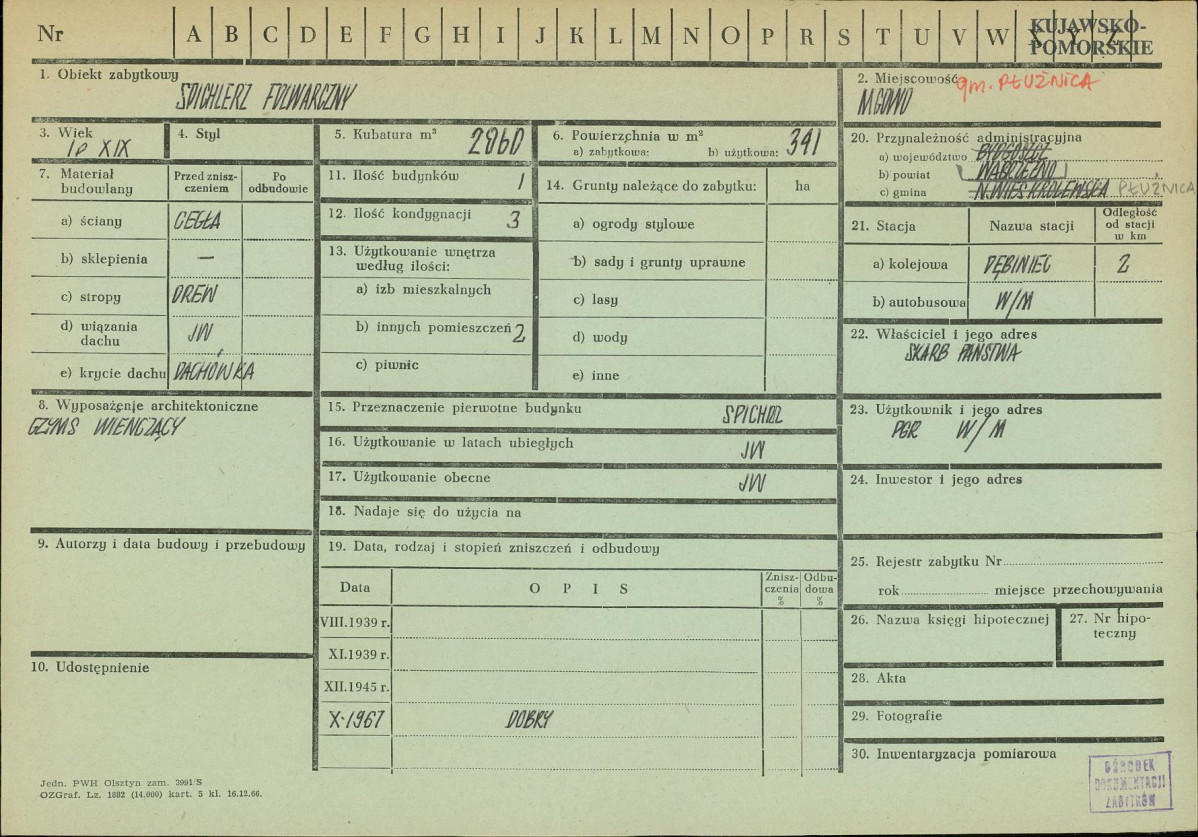 Nr A B C D E F G H I J K L M N O P R S T U V W X Y Z
KUJAWSKO-
POMORSKIE
1. Obiekt zabytkowy
SPICHLERZ FOLWARCZNY
2. Miejscowość gm. PŁUŻNICA
MGOWO
3. Wiek
IP XIX
4. Styl
5. Kubatura m³ 2860
6. Powierzchnia w m²
a) zabytkowa: b) użytkowa: 341
7. Materiał
budowlany
Przed znisz-
czeniem
Po
odbudowie
a) ściany CEGŁA
b) sklepienia —
c) stropy DREW
d) wiązania
dachu JW
e) krycie dachu DACHÓWKA
8. Wyposażenie architektoniczne
GZYMS WIEŃCZĄCY
9. Autorzy i data budowy i przebudowy
10. Udostępnienie
11. Ilość budynków 1
12. Ilość kondygnacji 3
13. Użytkowanie wnętrza
według ilości:
a) izb mieszkalnych
b) innych pomieszczeń 2
c) piwnic
14. Grunty należące do zabytku: ha
a) ogrody stylowe
b) sady i grunty uprawne
c) lasy
d) wody
e) inne
15. Przeznaczenie pierwotne budynku SPICHLZ
16. Użytkowanie w latach ubiegłych JW
17. Użytkowanie obecne JW
18. Nadaje się do użycia na
19. Data, rodzaj i stopień zniszczeń i odbudowy
Data OPIS Znisz-
czenia
% Odbu-
dowa
%
VIII.1939 r.
XI.1939 r.
XII.1945 r.
X-1967 DOBRY
20. Przynależność administracyjna
a) województwo BYDGOSZCZ
b) powiat WĄBRZEŹNO
c) gmina N. WIEŚ KRÓLEWSKA PŁUŻNICA
21. Stacja Nazwa stacji Odległość
od stacji
w km
a) kolejowa DĘBINIEC 2
b) autobusowa W/M
22. Właściciel i jego adres
SKARB PAŃSTWA
23. Użytkownik i jego adres
PGR W/M
24. Inwestor i jego adres
25. Rejestr zabytku Nr
rok miejsce przechowywania
26. Nazwa księgi hipotecznej
27. Nr hipo-
teczny
28. Akta
29. Fotografie
30. Inwentaryzacja pomiarowa
OŚRODEK
DOKUMENTACJI
ZABYTKÓW
Jedn. PWH Olsztyn zam. 3991/S
OZGraf. Lz. 1882 (14.000) kart. 5 kl. 16.12.66.